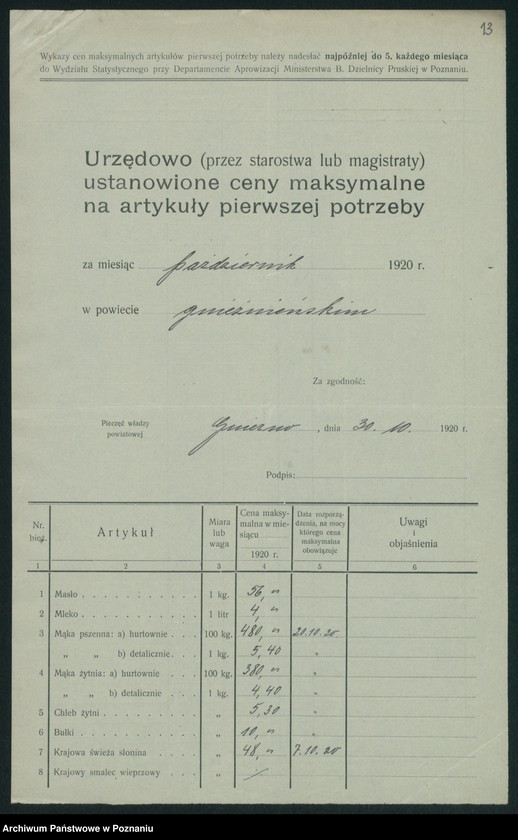 13
Wykazy cen maksymalnych artykułów pierwszej potrzeby należy nadesłać najpóźniej do 5. każdego miesiąca
do Wydziału Statystycznego przy Departamencie Aprowizacji Ministerstwa B. Dzielnicy Pruskiej w Poznaniu.
Urzędowo (przez starostwa lub magistraty)
ustanowione ceny maksymalne
na artykuły pierwszej potrzeby
za miesiąc październik 1920 r.
w powiecie gnieźnieńskim
Za zgodność:
Pieczęć władzy
powiatowej
Gniezno, dnia 30. 10. 1920 r.
Podpis:
Nr. bież. | Artykuł | Miara lub waga | Cena maksymalna w miesiącu 1920 r. | Data rozporządzenia, na mocy którego cena maksymalna obowiązuje | Uwagi i objaśnienia
1 2 3 4 5 6
1 Masło . . . . . . . . . . . 1 kg. 56,"
2 Mleko . . . . . . . . . . . 1 litr 4,"
3 Mąka pszenna: a) hurtownie . . . 100 kg. 480,„ 20.10.20
„ „ b) detalicznie . . . 1 kg. 5,40 "
4 Mąka żytnia: a) hurtownie . . . 100 kg. 380,„ "
„ „ b) detalicznie . . . 1 kg. 4,40 "
5 Chleb żytni . . . . . . . . . „ 5,30 "
6 Bułki . . . . . . . . . . . „ 10,„ "
7 Krajowa świeża słonina . . . . „ 48,„ 7.10.20
8 Krajowy smalec wieprzowy . . . „ -/-
Archiwum Państwowe w Poznaniu